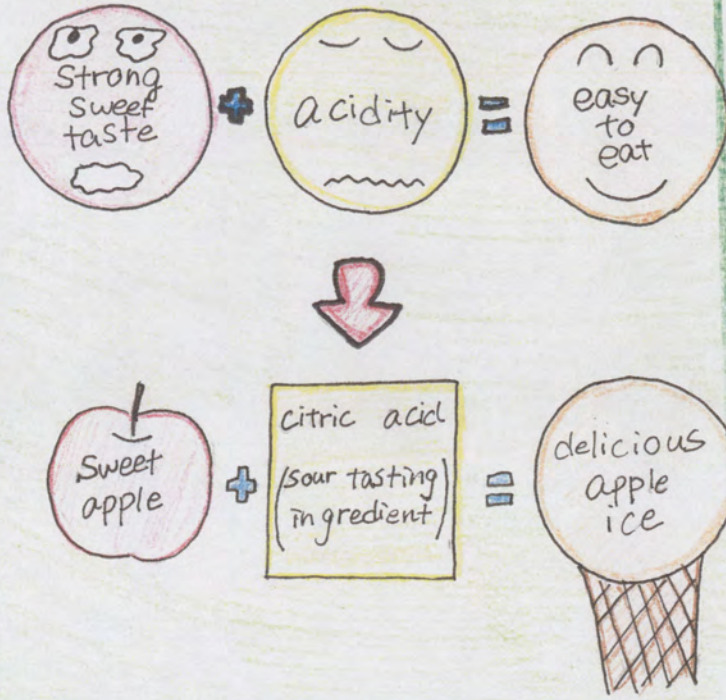 Strong
sweet
taste
+
acidity
=
easy
to
eat
sweet
apple
+
citric acid
(sour tasting
ingredient)
=
delicious
apple
ice